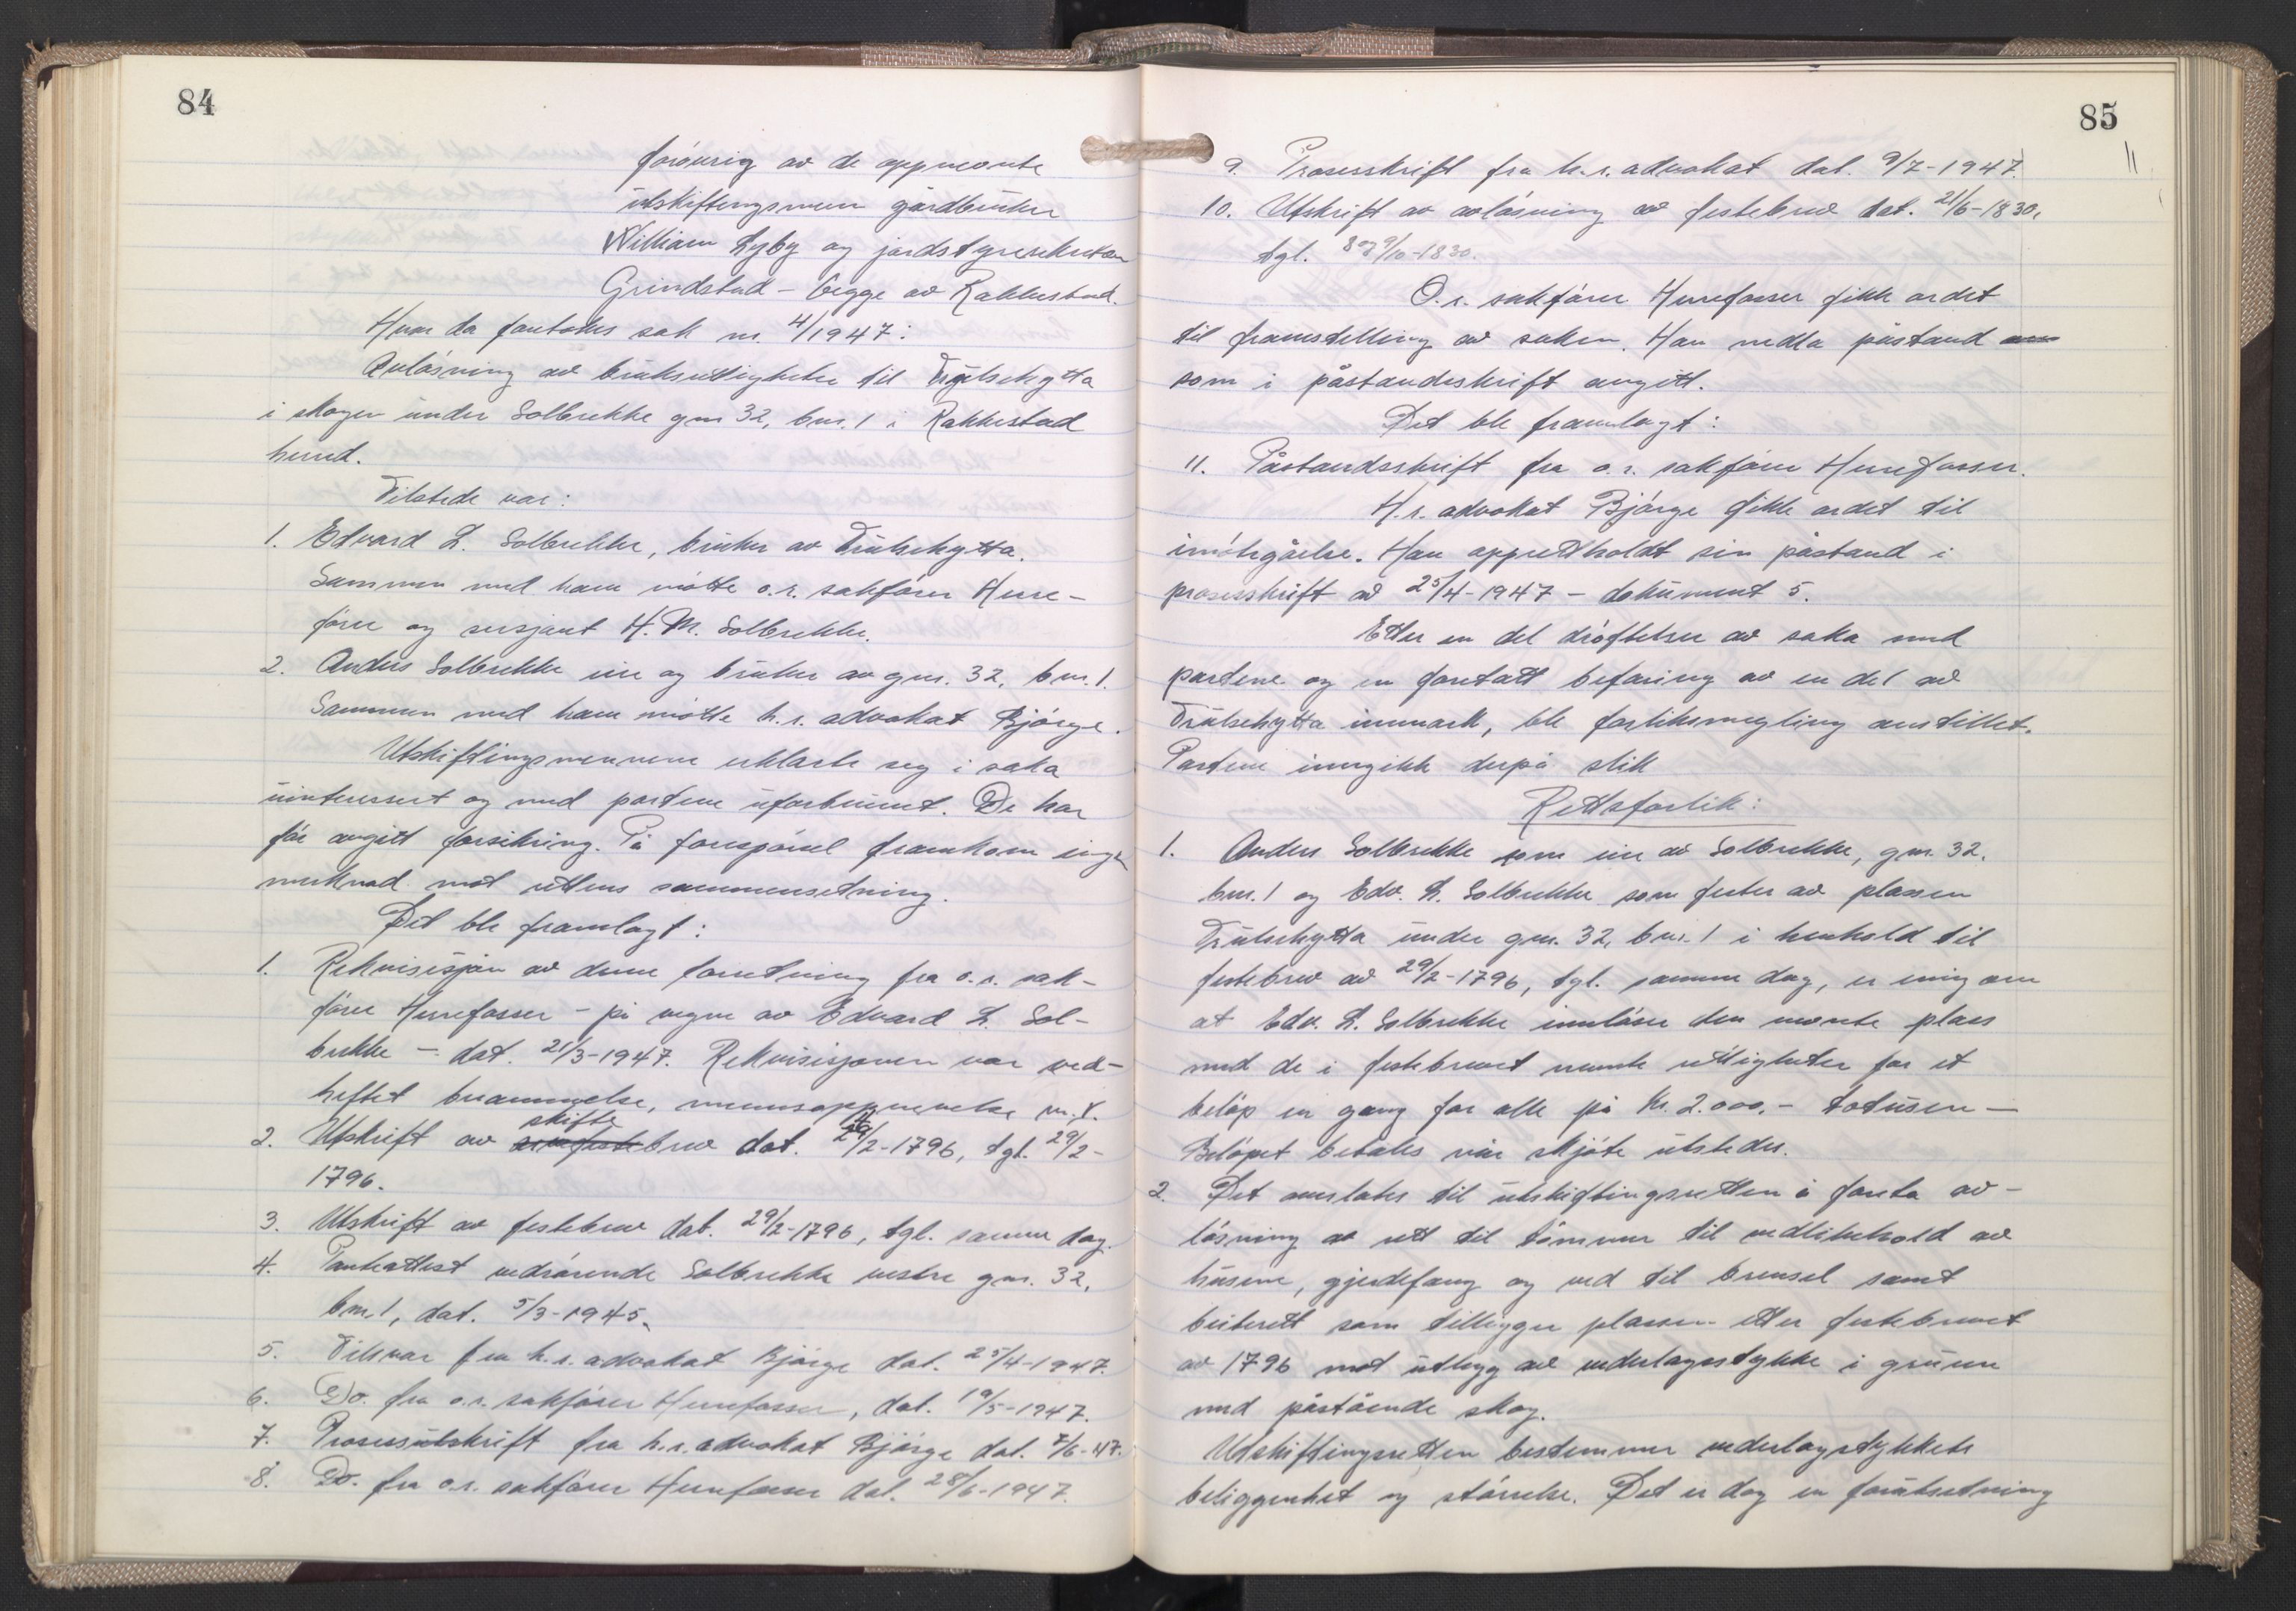 84
forøvrig av de oppnevnte
utskiftingsmenn gårdbruker
William Lyby og jordstyresekretær
Grindstad – begge av Rakkestad.
Hvor da foretokes sak nr. 4/1947:
Avløsning av bruksrettigheter til Trulsehytta
i skogen under Solbrekke gnr 32, bnr. 1 i Rakkestad
herred.
Tilstede var:
1. Edvard L. Solbrekke, bruker av Trulsehytta.
Sammen med ham møtte o.r. sakfører Hurre-
fører og sersjant H. M. Solbrekke.
2. Anders Solbrekke eier og bruker av gnr. 32, bnr. 1.
Sammen med ham møtte h.r. advokat Bjørge.
Utskiftingsmennene erklærte seg i saka
uinteressert og med partene uforbunnet. De har
før avgitt forsikring. På forespørsel framkom ingen
merknad mot rettens sammensetning.
Det ble framlagt:
1. Rekvisisjon av denne forretning fra o.r. sak-
fører Hurrefasser – på vegne av Edvard L. Sol-
brekke – dat. 21/3-1947. Rekvisisjonen var ved-
heftet berammelse, mennsoppnevnelse m.v.
skifte
2. Utskrift av brev dat. 29/2-1796, tgl. 29/2-
1796.
3. Utskrift av festebrev dat. 29/2-1796, tgl. samme dag.
4. Panteattest vedrørende Solbrekke vestre gnr. 32,
bnr. 1, dat. 5/3-1945.
5. Tilsvar fra h.r. advokat Bjørge dat. 25/4-1947.
6. Do. fra o.r. sakfører Hurrefasser, dat. 19/5-1947.
7. Prosessutskrift fra h.r. advokat Bjørge dat. 7/6-47.
8. Do. fra o.r. sakfører Hurrefasser dat. 28/6-1947.
85
11
9. Prosesskrift fra h.r. advokat dat. 9/7-1947.
10. Utskrift av avløsning av festebrev dat. 21/6-1830,
tgl. 8 og 9/10-1830.
O.r. sakfører Hurrefasser fikk ordet
til framstilling av saken. Han nedla påstand
som i påstandsskrift avgitt.
Det ble framlagt:
11. Påstandsskrift fra o.r. sakfører Hurrefasser.
H.r. advokat Bjørge fikk ordet til
imøtegåelse. Han opprettholdt sin påstand i
prosesskrift av 25/4-1947 – dokument 5.
Etter en del drøftelser av saka med
partene og en foretatt befaring av en del av
Trulsehytta innmark, ble forliksmegling anstillet.
Partene inngikk derpå slik
Rettsforlik:
1. Anders Solbrekke som eier av Solbrekke, gnr. 32,
bnr. 1 og Edv. L. Solbrekke som fester av plassen
Trulsehytta under gnr. 32, bnr. 1 i henhold til
festebrev av 29/2-1796, tgl. samme dag, er enig om
at Edv. L. Solbrekke innløser den nevnte plass
med de i festebrevet nevnte rettigheter for et
beløp en gang for alle på kr. 2.000,- totusen –
Beløpet betales når skjøte utstedes.
2. Det overlates til utskiftingsretten å foreta av-
løsning av rett til tømmer til vedlikehold av
husene, gjerdefang og ved til brensel samt
beiterett som tilligger plassen etter festebrevet
av 1796 mot utlegg av vederlagsstykke i grunn
med påstående skog.
Utskiftingsretten bestemmer vederlagstykkets
beliggenhet og størrelse. Det er dog en forutsetning